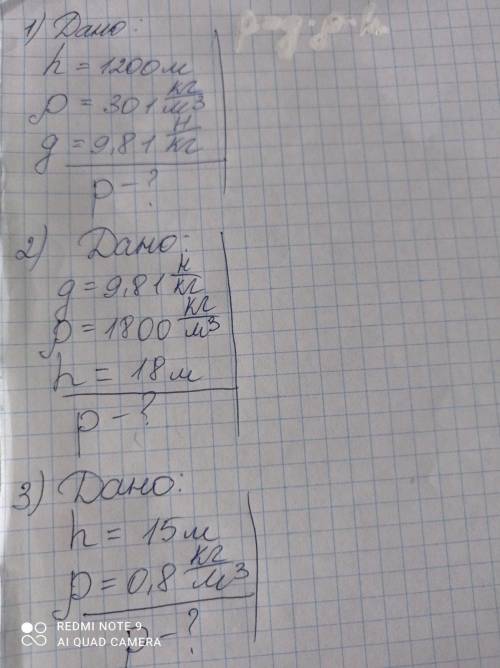 1) Дано:
h = 1200м
ρ = 301 кг/м³
g = 9,81 Н/кг
p - ?
2) Дано:
g = 9,81 Н/кг
ρ = 1800 кг/м³
h = 18м
p - ?
3) Дано:
h = 15м
ρ = 0,8 кг/м³
p - ?
REDMI NOTE 9
AI QUAD CAMERA